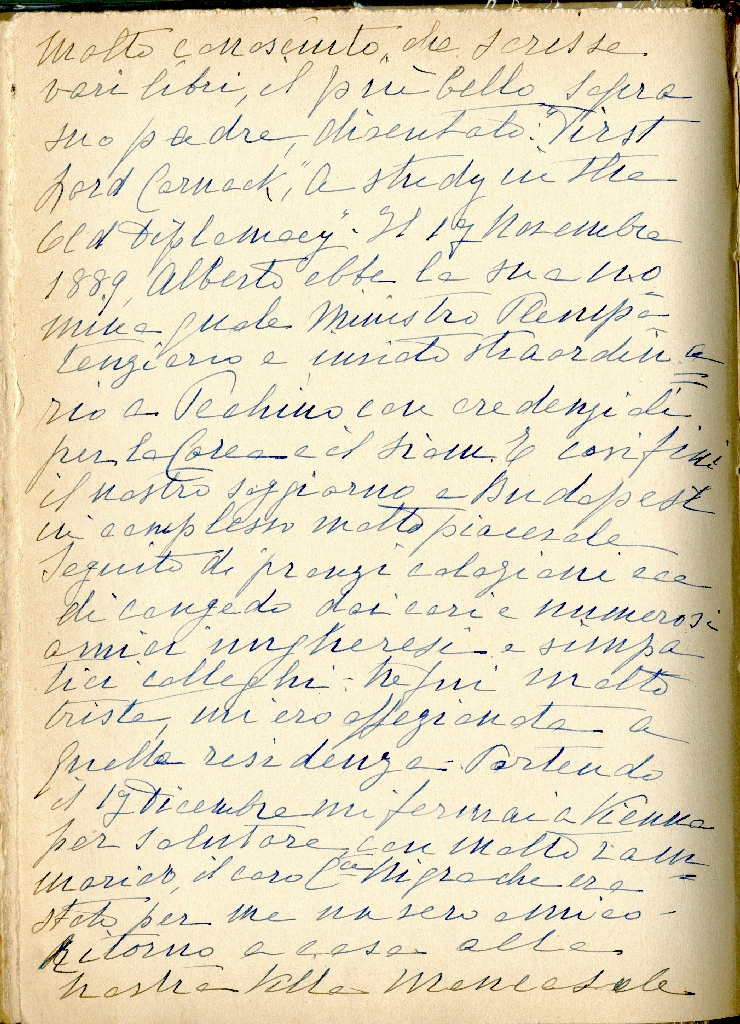 molto conosciuto, che scrisse
vari libri, il più bello sopra
suo padre, diventato: "First
Lord Carnock", "A study in the
Old Diplomacy". Il 17 Novembre
1889, Alberto ebbe la sua no-
mina quale Ministro Plenipo-
tenziario e inviato straordin a
rio a Pechino con credenziali
per la Corea e il Siam. E così finì
il nostro soggiorno a Budapest
in complesso molto piacevole
Seguito di pranzi colazioni ecc
di congedo dai cari e numerosi
amici ungheresi e simpa
tici colleghi - Ne fui molto
triste, mi ero affezionata a
quella residenza - Partendo
il 17 Dicembre mi fermai a Vienna
per salutare, con molto ram=
marico, il caro Cte Nigra che era
stato per me un vero amico -
Ritorno a casa alla
nostra Villa Moncasale